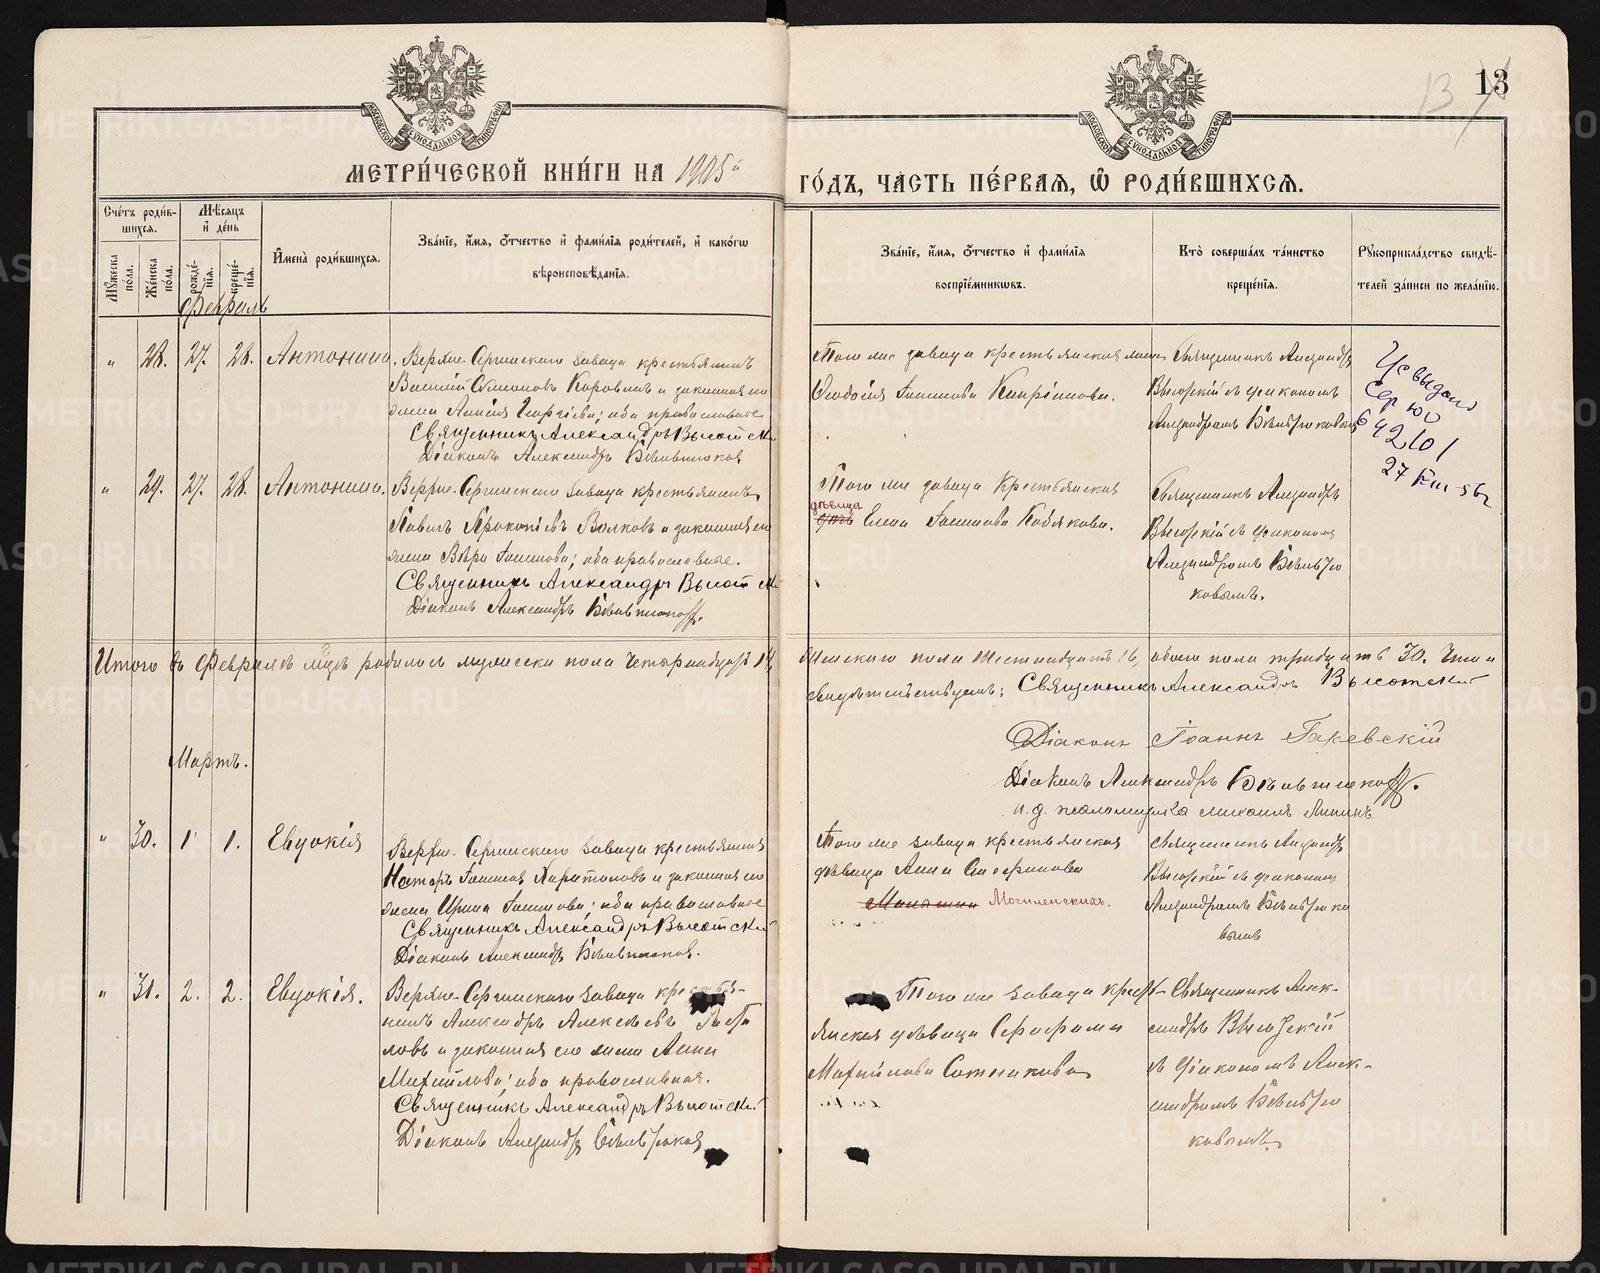 МЕТРИ́ЧЕСКОЙ КНИ́ГИ НА 1905й ГО́ДЪ, ЧА́СТЬ ПЕ́РВАЯ, Ѡ РОДИ́ВШИХСѦ.
13
13
Сче́тъ роди́в-
шихся.
Мѣ́сяцъ
и҆ де́нь
И҆мена̀ роди́вшихся.
Зва́нїе, и҆́мя, ѻ҆́тчество и҆ фами́лїя роди́телей, и҆ како́гѡ
вѣроисповѣ́данїя.
Зва́нїе, и҆́мя, ѻ҆́тчество и҆ фами́лїя
воспрїе́мникѡвъ.
Кто̀ соверша́лъ та́инство
креще́нїя.
Рꙋкоприкла́дство свидѣ́-
телей за́писи по жела́нїю.
Мꙋ́жеска по́ла.
Же́нска по́ла.
рожде́-
нїя.
креще́-
нїя.
Февраль
" 28. 27. 28. Антонина.
Верхне-Сергинскаго завода крестьянинъ
Василій Симоновъ Коровинъ и законная его
жена Анисія Георгіева; оба православные
Священникъ Александръ Высотскій
Діаконъ Александръ
Того же завода крестьянская жена
Феодосія Іоаннова
Священникъ Александръ
Высотскій съ діакономъ
Александромъ
Св выдано
Сер юо
642101
27
" 29. 27. 28. Антонина.
Верхне-Сергинскаго завода крестьянинъ
Павелъ Прокопіевъ Волковъ и законная его
жена Вѣра Іоаннова; оба православные.
Священникъ Александръ Высотскій
Діаконъ Александръ
Того же завода крестьянская
дѣвица
Елена Іоаннова Кобякова.
Священникъ Александръ
Высотскій съ діакономъ
Александромъ
ковымъ.
Итого въ Февралѣ мцѣ родилось мужеска пола четырнадцать 14,
женскаго пола шестнадцать 16, обоего пола тридцать 30. Что и
свидѣтельствуемъ: Священникъ Александръ Высотскій
Діаконъ Іоаннъ Гаревскій
Діаконъ Александръ
и. д. псаломщика Михаилъ
Мартъ.
" 30. 1 1. Евдокія
Верхне-Сергинскаго завода крестьянинъ
Несторъ Іоанновъ Харитоновъ и законная его
жена Ирина Іоаннова; оба православные
Священникъ Александръ Высотскій
Діаконъ Александръ
Того же завода крестьянская
дѣвица Анна Стефанова
Могиленскихъ.
Священникъ Александръ
Высотскій съ діакономъ
Александромъ
вымъ
" 31. 2. 2. Евдокія.
Верхне-Сергинскаго завода крестья-
нинъ Александръ Алексѣевъ
ловъ и законная его жена Анна
Михайлова; оба православные.
Священникъ Александръ Высотскій
Діаконъ Александръ
Того же завода кресть-
янская дѣвица Серафима
Михайлова Сотникова
Священникъ Алек-
сандръ Высотскій
съ діакономъ Алек-
сандромъ
ковымъ.